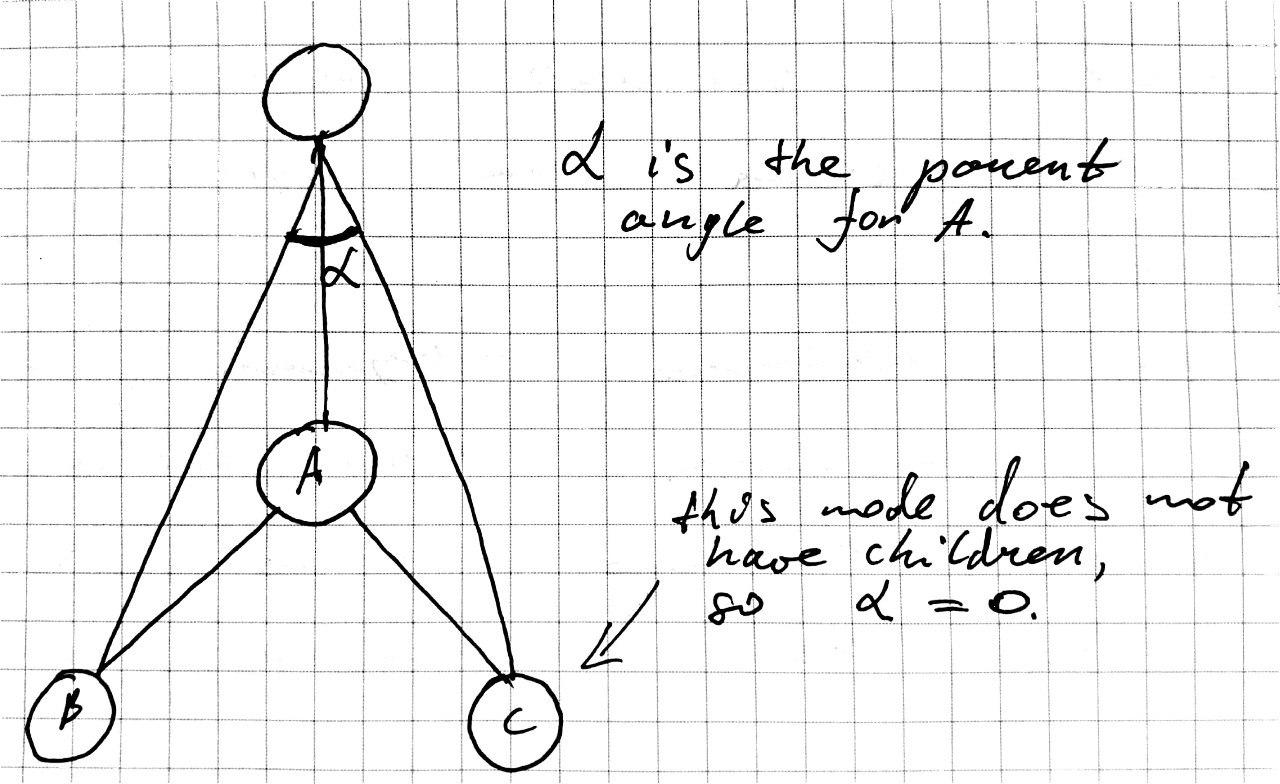 α is the parent
angle for A.
α
A
this node does not
have children,
so α = 0.
B
C